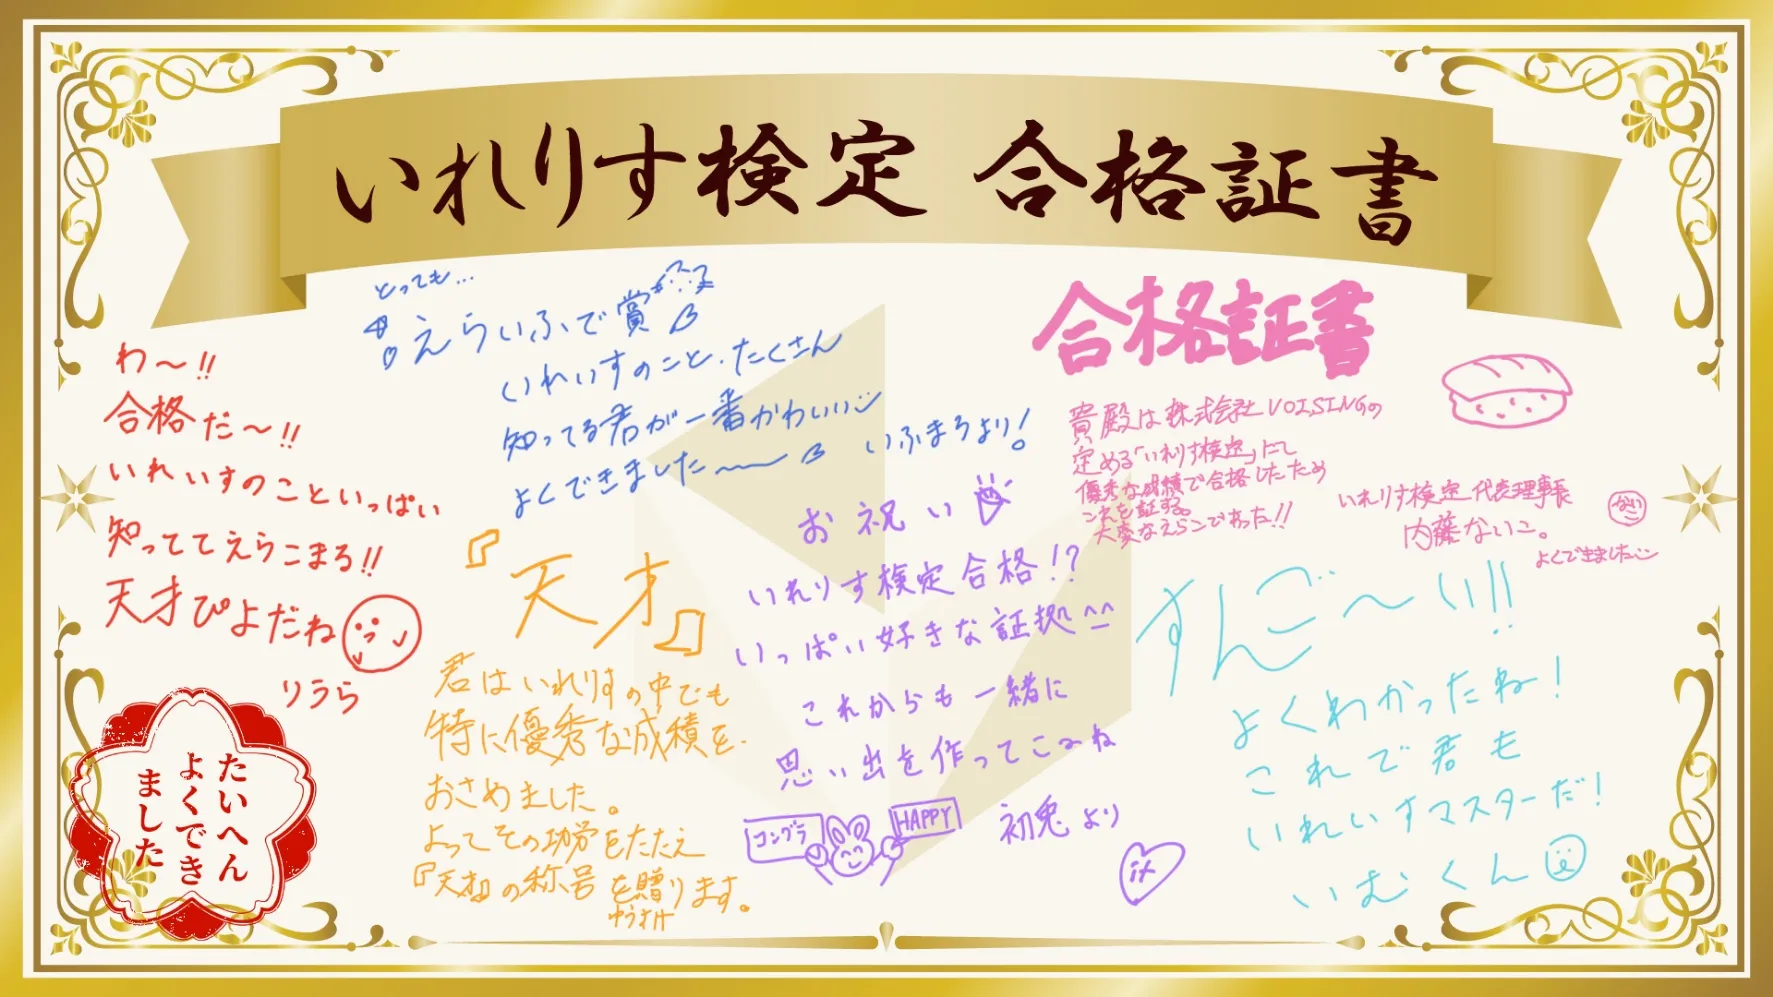 いれりす検定 合格証書
とっても…
えらいふで賞
いれいすのこと、たくさん
知ってる君が一番かわいい
よくできました〜〜
いふまろより!
わ〜!!
合格だ〜!!
いれいすのこといっぱい
知っててえらこまる!!
天才ぴよだね
りうら
たいへん
よくでき
ました
『天才』
君はいれりすの中でも
特に優秀な成績を
おさめました。
よってその功労をたたえ
『天才』の称号を贈ります。
ゆうすけ
お祝い
いれりす検定合格!?
いっぱい好きな証拠^^
これからも一緒に
思い出を作ってこーね
コングラ
HAPPY
初兎より
合格証書
貴殿は株式会社VOISINGの
定める「いれりす検定」にて
優秀な成績で合格したため
これを証する。
大変なえらこであった!!
いれりす検定代表理事長
内藤ないこ。
ない
よくできました
すんご〜い!!
よくわかったね!
これで君も
いれいすマスターだ!
いむくん